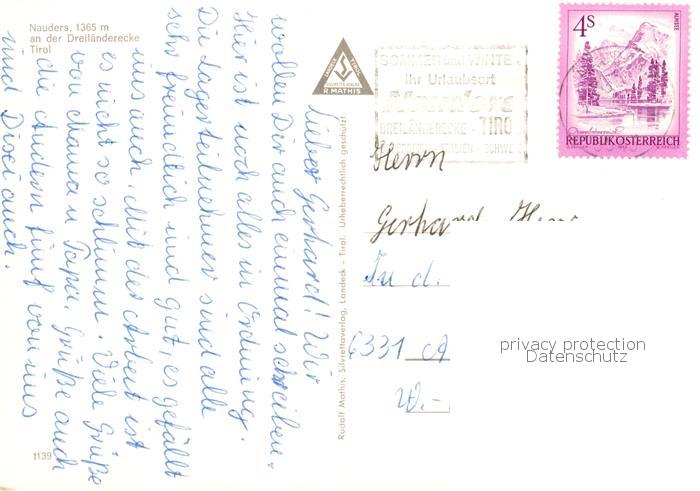 Nauders, 1365 m
an der Dreiländerecke
Tirol
Lieber Gerhard! Wir
wollen Dir auch einmal schreiben.
Hier ist noch alles in Ordnung.
Die Lagerteilnehmer sind alle
sehr freundlich und gut, es gefällt
uns auch. Mit der Arbeit ist
es nicht so schlimm. Viele Grüße
von Mama u. Papa. Grüße auch
die Andern fünf von uns
und Disei auch.
1139
Rudolf Mathis, Silvrettaverlag, Landeck - Tirol. Urheberrechtlich geschützt!
R. MATHIS
SOMMER und WINTER
Ihr Urlaubsort
Nauders
DREILÄNDERECKE - TIRO
ITALIEN - SCHWE
4s
ALMSEE
REPUBLIK ÖSTERREICH
Herrn
Gerhard
In d.
6331 A
W.-
privacy protection
Datenschutz